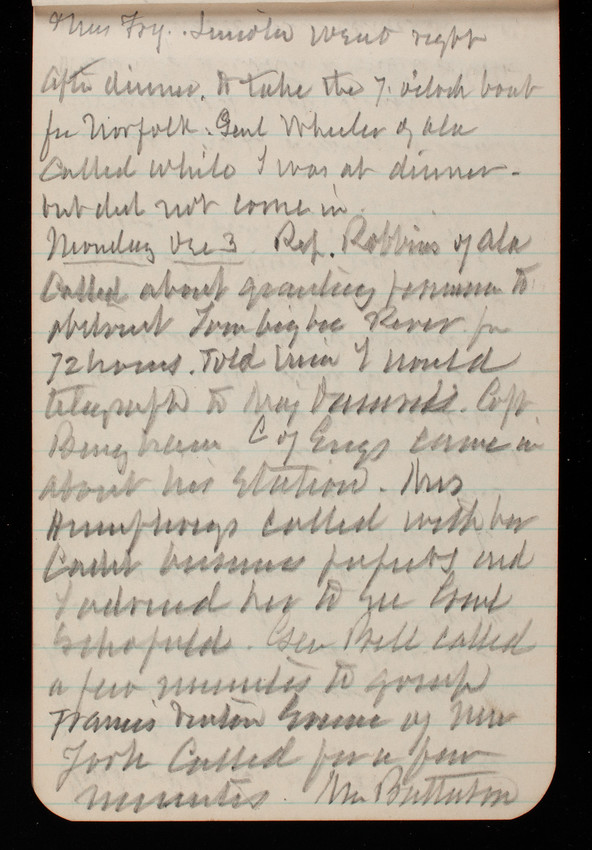 Mrs Fry. Lincoln went right
after dinner, to take the 7 o'clock boat
for Norfolk. Genl Wheeler of Ala
Called while I was at dinner -
but did not come in.
Monday Dec 3 Rep. Robbins of Ala
Called about granting permission to
obstruct Tombigbee River for
72 hours. Told him I would
telegraph to Maj Capt
Bingham C of Engs came in
about his Station. Mrs
Humphreys called with her
Cadet business papers and
I advised her to see Genl
Schofield. Gen Bell called
a few minutes to gossip
Francis Vinton Greene of New
York Called for a few
minutes. Mr